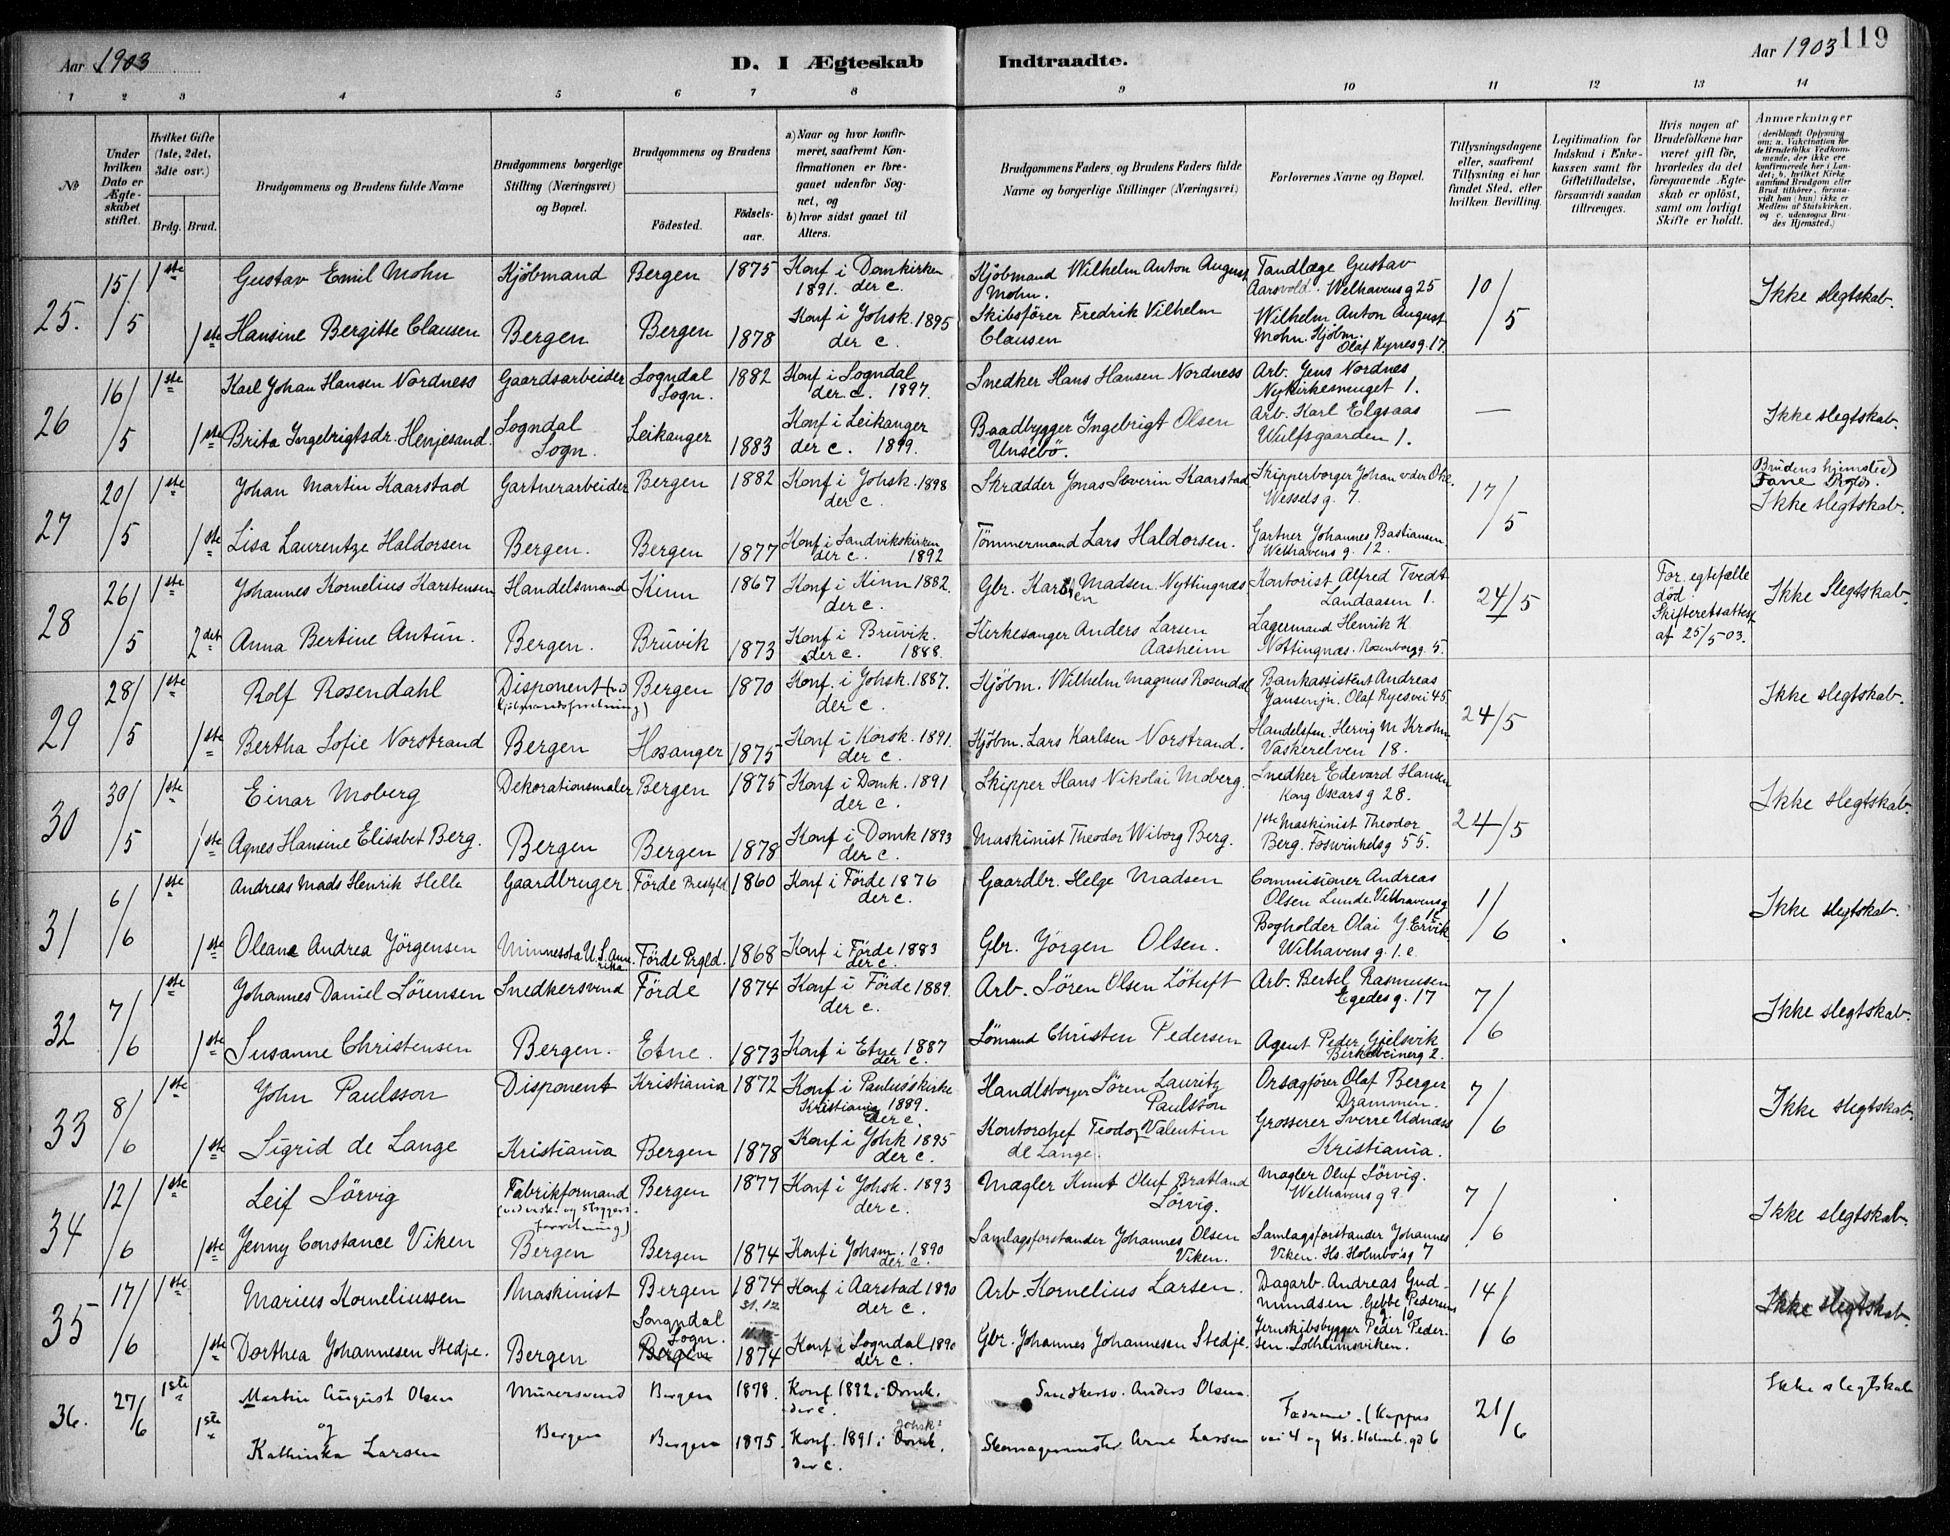 Aar 1903
D. I Ægteskab Indtraadte.
Aar 1903 119
1 2 3 4 5 6 7 8 9 10 11 12 13 14
No.
Under hvilken Dato er Ægteskabet stiftet.
Hvilket Gifte (1ste, 2det, 3die osv.)
Brdg. Brud.
Brudgommens og Brudens fulde Navne
Brudgommens borgerlige Stilling (Næringsvei) og Bopæl.
Brudgommens og Brudens
Fødested. Fødselsaar.
a) Naar og hvor konfirmeret, saafremt Konfirmationen er foregaaet udenfor Sognet, og
b) hvor sidst gaaet til Alters.
Brudgommens Faders og Brudens Faders fulde Navne og borgerlige Stillinger (Næringsvei)
Forlovernes Navne og Bopæl.
Tillysningsdagene eller, saafremt Tillysning ei har fundet Sted, efter hvilken Bevilling.
Legitimation for Indskud i Enkekassen samt for Giftetilladelse, forsaavidt saadan tiltrænges.
Hvis nogen af Brudefolkene har været gift før, hvorledes da det foregaaende Ægteskab er opløst, samt om lovligt Skifte er holdt.
Anmærkninger
(deriblandt Oplysning om: a. Vaccination for de Brudefolks Vedkommende, der ikke ere konfirmerede her i Landet; b. hvilket Kirkesamfund Brudgom eller Brud tilhører, forsaavidt han (hun) ikke er Medlem af Statskirken, og c. udensogns Brudes Hjemsted.)
25. 15/5 1ste Gustav Emil Mohn Kjöbmand Bergen 1875 Konf i Domkirken 1891. der c. Kjöbmand Wilhelm Anton August Mohn. Tandlæge Gustav Aarsvold. Welhavens g 25 10/5 Ikke slegtskab.
1ste Hansine Bergitte Clausen Bergen Bergen 1878 Konf i Johsk. 1895 der c. Skibsförer Fredrik Vilhelm Clausen Wilhelm Anton August Mohn. Kjöbm. Olaf Kyrresg. 17.
26 16/5 1ste Karl Johan Hansen Nordness Gaardsarbeider Sogndal Sogn. 1882 Konf i Sogndal der c. 1897. Snedker Hans Hansen Nordness Arb. Jens Nordnes Nykirkesmuget 1. — Ikke slegtskab.
1ste Brita Ingebrigtsdr. Henjesand. Sogndal Sogn. Leikanger 1883 Konf i Leikanger der c. 1899. Baadbygger Ingebrigt Olsen Arb. Karl Elgsaas Wulfsgaarden 1.
27 20/5 1ste Johan Martin Kaarstad Gartnerarbeider Bergen 1882 Konf i Johsk. 1898 der c. Skrædder Jonas Severin Kaarstad Skipperborger Johan v.der Ohe. Wessels g. 7. 17/5 Brudens hjemsted Fane Ikke slegtskab.
1ste Lisa Laurentze Haldorsen Bergen. Bergen 1877 Konf i Sandvikskirken der c. 1892 Tömmermand Lars Haldorsen. Gartner Johannes Bastiansen. Welhavens g. 12.
28 26/5 1ste Johannes Kornelius Karstensen Handelsmand Kinn 1867 Konf i Kinn 1882. der c. Gbr. Karsten Madsen Nyttingnæs Kontorist Alfred Tvedt Landaasen 1. 24/5 For. egtefælle död. Skifteretsattest af 25/5 03. Ikke Slegtskab.
2det Anna Bertine Antun. Bergen. Bruvik 1873 Konf i Bruvik. der c. 1888. Kirkesanger Anders Larsen Aasheim Lagermand Henrik K Nottingnæs. Rosenborgg. 5.
29 28/5 1ste Rolf Rosendahl Disponent Bergen 1870 Konf. i Johsk. 1887. der c. Kjöbm. Wilhelm Magnus Rosendal Bankassistent Andreas Jansenjn. Olaf Ryesvei 45. 24/5 Ikke slegtskab.
1ste Bertha Sofie Norstrand Bergen Hosanger 1875 Konf i Korsk. 1891. der c. Kjöbm. Lars Karlsen Norstrand. Handelsfm. Hervig M Krohn Vaskerelven 18.
30 30/5 1ste Einar Moberg Dekorationsmaler Bergen 1875 Konf i Domk. 1891 der c. Skipper Hans Nikolai Moberg. Snedker Edevard Hansen Kong Oscars g 28. 24/5 Ikke slegtskab.
1ste Agnes Hansine Elisabet Berg. Bergen Bergen 1878 Konf i Domk 1893 der c. Maskinist Theodor Wiborg Berg. 1ste Maskinist Theodor Berg. Fosvinkelsg 55.
31 6/6 1ste Andreas Mads Henrik Helle Gaardbruger Förde Prestgjld 1860 Konf i Förde 1876 der c. Gaardbr. Helge Madsen Commisioner Andreas Olsen Lunde. Velhavensg 1c 1/6 Ikke slegtskab.
1ste Oleana Andrea Jörgensen Minnesota U.S. Amerika Förde Prgld. 1868 Konf i Förde 1883 der c. Gbr. Jörgen Olsen. Bogholder Olai J. Ervik Welhavens g. 1. c.
32 7/6 1ste Johannes Daniel Sörensen Snedkersvend Förde 1874 Konf i Förde 1889. der c. Arb. Sören Olsen Lötuft Arb. Bertel Rasmussen Egedes g. 17 7/6 Ikke slegtskab.
1ste Susanne Christensen Bergen. Etne. 1873 Konf i Etne 1887 der c. Sömand Christen Pedersen Agent Peder Gjelsvik Birkebeinerg 2.
33 8/6 1ste John Paulsson Disponent Kristiania 1872 Konf i Paulus'skirke Kristiania 1889. der c. Handlsborger Sören Lauritz Paulsson Orsagförer Olaf Berger Drammen. 7/6 Ikke slegtskab.
1ste Sigrid de Lange Kristiania Bergen 1878 Konf i Johk 1895 der c. Kontorchef Teodor Valentin de Lange. Grosserer Sverre Udnæss Kristiania.
34 12/6 1ste Leif Sörvig Fabrikformand Bergen 1877 Konf i Johsk. 1893 der c. Mægler Knut Oluf Bratland Sörvig. Mægler Oluf Sörvig. Welhavens g 9. 7/6 Ikke slegtskab.
1ste Jenny Constance Viken Bergen Bergen 1874 Konf i Johsm. 1890 der c. Samlagsforstander Johannes Olsen Viken. Samlagsforstander Johannes Viken. Hs. Holmbo'sg 7
35 17/6 1ste Marius Korneliussen Maskinist Bergen 1874 31.12 Konf i Aarstad 1890 der c. Arb. Kornelius Larsen. Dagarb. Andreas Gudmundsen. Gebbe Pedersens g 10. 14/6 Ikke slegtskab.
1ste Dorthea Johannesen Stedje. Bergen Songndal Sogn. Bergen 1874 Konf i Sogndal 1890 der c. Gbr. Johannes Johannesen Stedje. Jernskibsbygger Peder Pedersen. Solheimsviken.
36. 27/6 1ste Martin August Olsen Murersvend Bergen 1878. Konf. 1892 i Domk. der c. Snedkersv. Anders Olsen. 21/6 Ikke slegtskab
og
1ste Kathinka Larsen Bergen Bergen 1875. Konf. 1891 i Domk. Johsk: der c. Skomagermester Arne Larsen Fædrene. (Kappesvei 4 og Hs. Holmb. gd 6